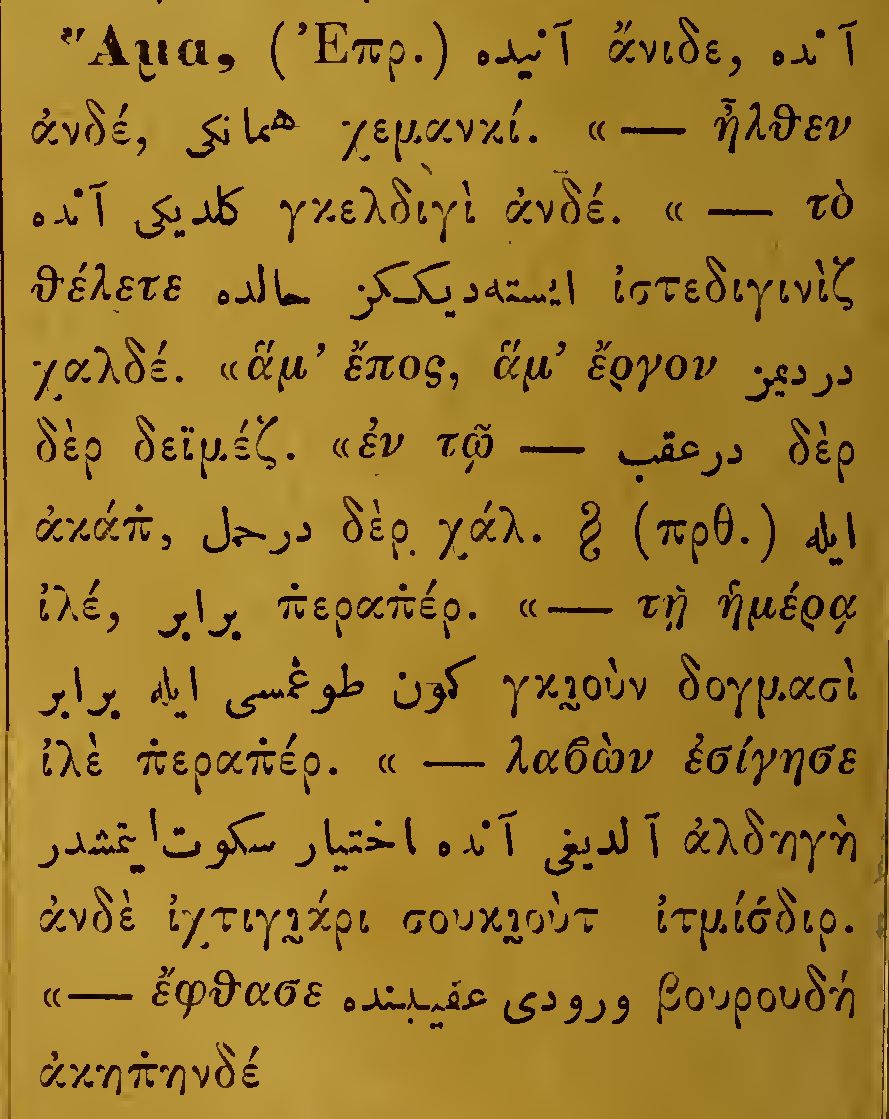 Ἅμα, (Ἐπρ.) آنیده ἄνιδε, آنده
ἀνδέ, همانکی χεμανκί. «— ἦλθεν
کلدیکی آنده γκελδιγὶ ἀνδέ. « — τὸ
θέλετε ایسته‌دیککز حالده ἰστεδιγινὶζ
χαλδέ. «ἅμ’ ἔπος, ἅμ’ ἔργον دردیمز
δὲρ δεϊμέζ. «ἐν τῷ — درعقب δὲρ
ἀκάπ̇, درحال δὲρ χάλ. § (πρθ.) ایله
ἰλέ, برابر π̇εραπ̇έρ. «— τῇ ἡμέρᾳ
کون طوغمسی ایله برابر γκι̮οὺν δογμασὶ
ἰλὲ π̇εραπ̇έρ. « — λαβὼν ἐσίγησε
آلدیغی آنده اختیار سکوت ایتمشدر ἀλδηγὴ
ἀνδὲ ἰχτιγι̮άρι σουκι̮οὺτ ἰτμίσ̇διρ.
«— ἔφθασε ورودی عقیبنده βουρουδὴ
ἀκηπ̇ηνδέ